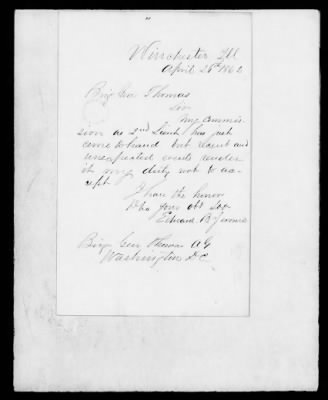 Winchester Ill
April 28th 1862
Brig Gen Thomas
Sir
My Commis
sion as 2nd Lieut has just
come to hand but recent and
unexpected events render
it my duty not to ac-
cept
I have the honor
to be your obt Svt
Edward B
Brig Gen Thomas AG
Washington DC